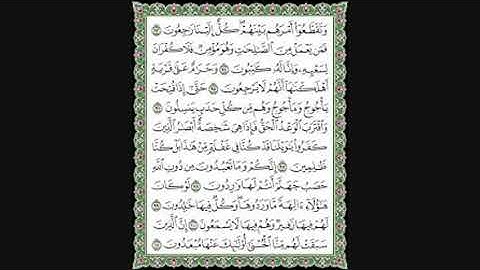 وَتَقَطَّعُوٓا۟ أَمْرَهُم بَيْنَهُمْ ۖ كُلٌّ إِلَيْنَا رَٰجِعُونَ ۝٩٣
فَمَن يَعْمَلْ مِنَ ٱلصَّٰلِحَٰتِ وَهُوَ مُؤْمِنٌ فَلَا كُفْرَانَ
لِسَعْيِهِۦ وَإِنَّا لَهُۥ كَٰتِبُونَ ۝٩٤ وَحَرَٰمٌ عَلَىٰ قَرْيَةٍ
أَهْلَكْنَٰهَآ أَنَّهُمْ لَا يَرْجِعُونَ ۝٩٥ حَتَّىٰٓ إِذَا فُتِحَتْ
يَأْجُوجُ وَمَأْجُوجُ وَهُم مِّن كُلِّ حَدَبٍ يَنسِلُونَ ۝٩٦
وَٱقْتَرَبَ ٱلْوَعْدُ ٱلْحَقُّ فَإِذَا هِىَ شَٰخِصَةٌ أَبْصَٰرُ ٱلَّذِينَ
كَفَرُوا۟ يَٰوَيْلَنَا قَدْ كُنَّا فِى غَفْلَةٍ مِّنْ هَٰذَا بَلْ كُنَّا
ظَٰلِمِينَ ۝٩٧ إِنَّكُمْ وَمَا تَعْبُدُونَ مِن دُونِ ٱللَّهِ
حَصَبُ جَهَنَّمَ أَنتُمْ لَهَا وَٰرِدُونَ ۝٩٨ لَوْ كَانَ
هَٰٓؤُلَآءِ ءَالِهَةً مَّا وَرَدُوهَا ۖ وَكُلٌّ فِيهَا خَٰلِدُونَ ۝٩٩
لَهُمْ فِيهَا زَفِيرٌ وَهُمْ فِيهَا لَا يَسْمَعُونَ ۝١٠٠ إِنَّ ٱلَّذِينَ
سَبَقَتْ لَهُم مِّنَّا ٱلْحُسْنَىٰٓ أُو۟لَٰٓئِكَ عَنْهَا مُبْعَدُونَ ۝١٠١